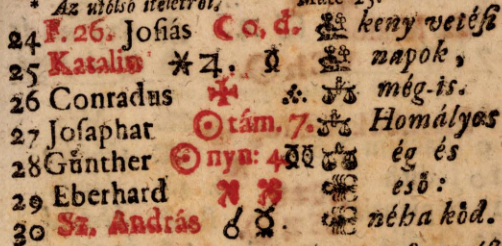 * Az utólsó ítéletről,
24 F. 26. Josiás ☾ o. d. keny vetési
25 Katalin ⚹ ♃. napok,
26 Conradus ✠ még-is.
27 Josaphat ☉ tám. 7. Homályos
28 Günther ☉ nyu: 4 ég és
29 Eberhard eső:
30 Sz. András ☌ néha köd.